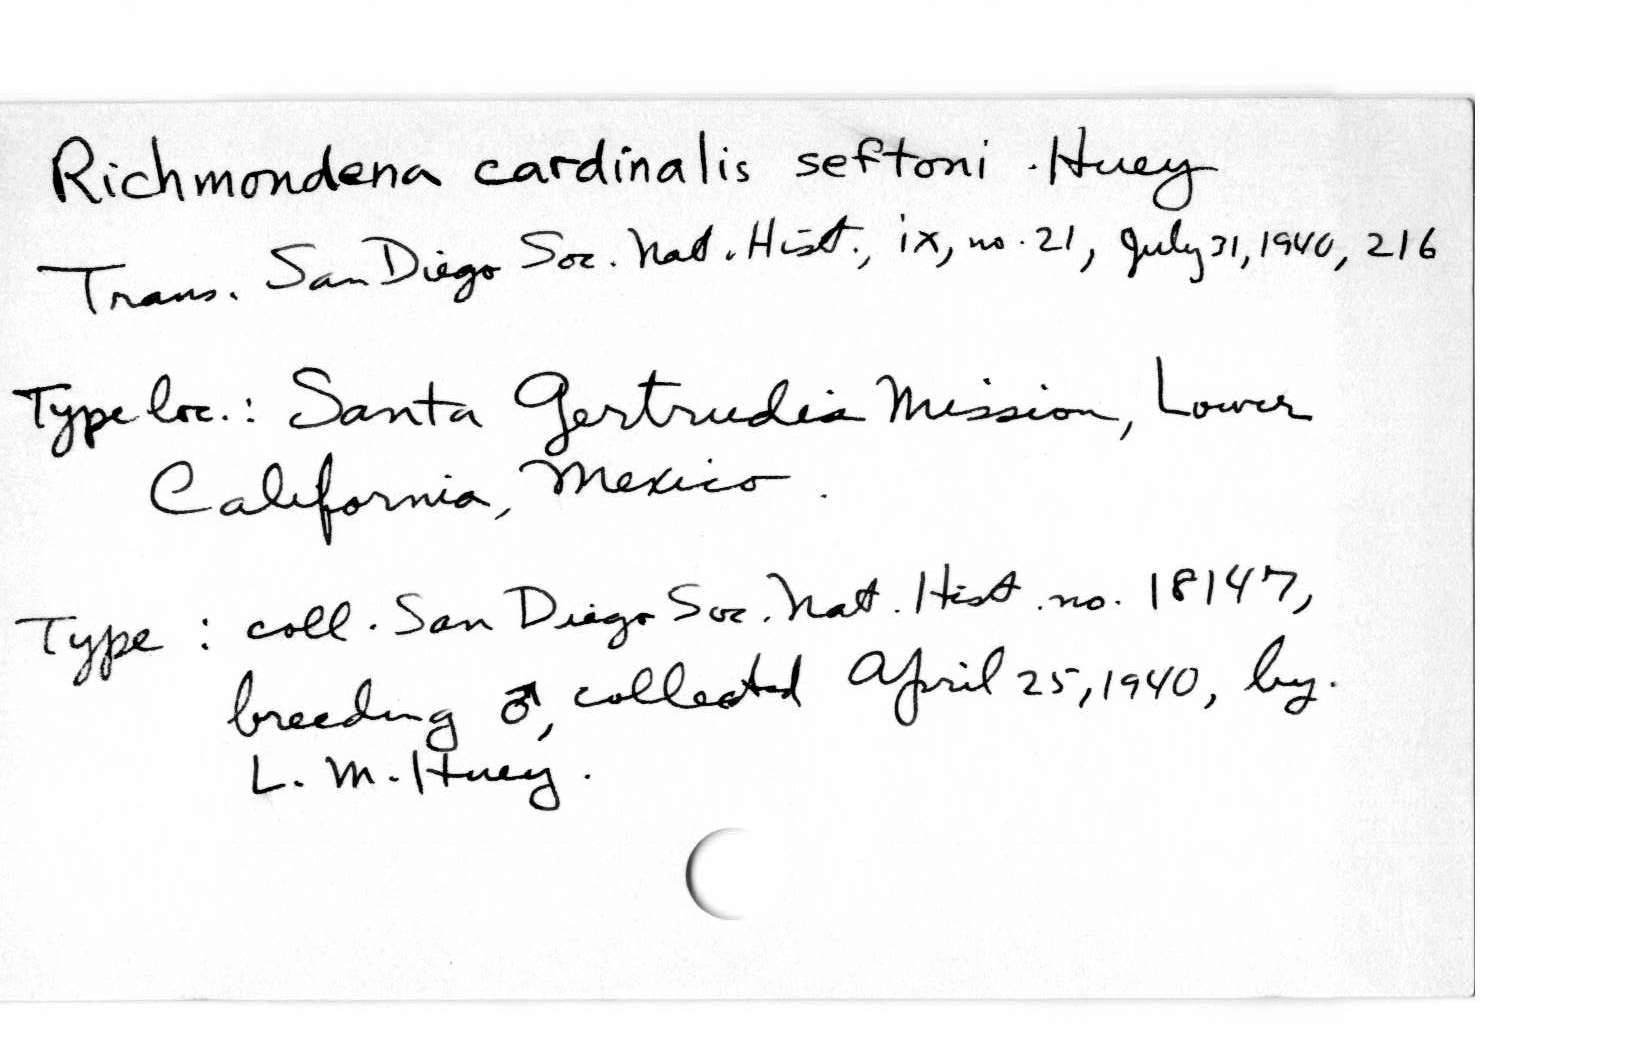 Richmondena cardinalis seftoni Huey
Trans. San Diego Soc. Nat. Hist., ix, no. 21, July 31, 1940, 216
Type loc.: Santa Gertrudis Mission, Lower
California, Mexico.
Type: coll. San Diego Soc. Nat. Hist. no. 18147,
breeding ♂, collected April 25, 1940, by.
L. M. Huey.